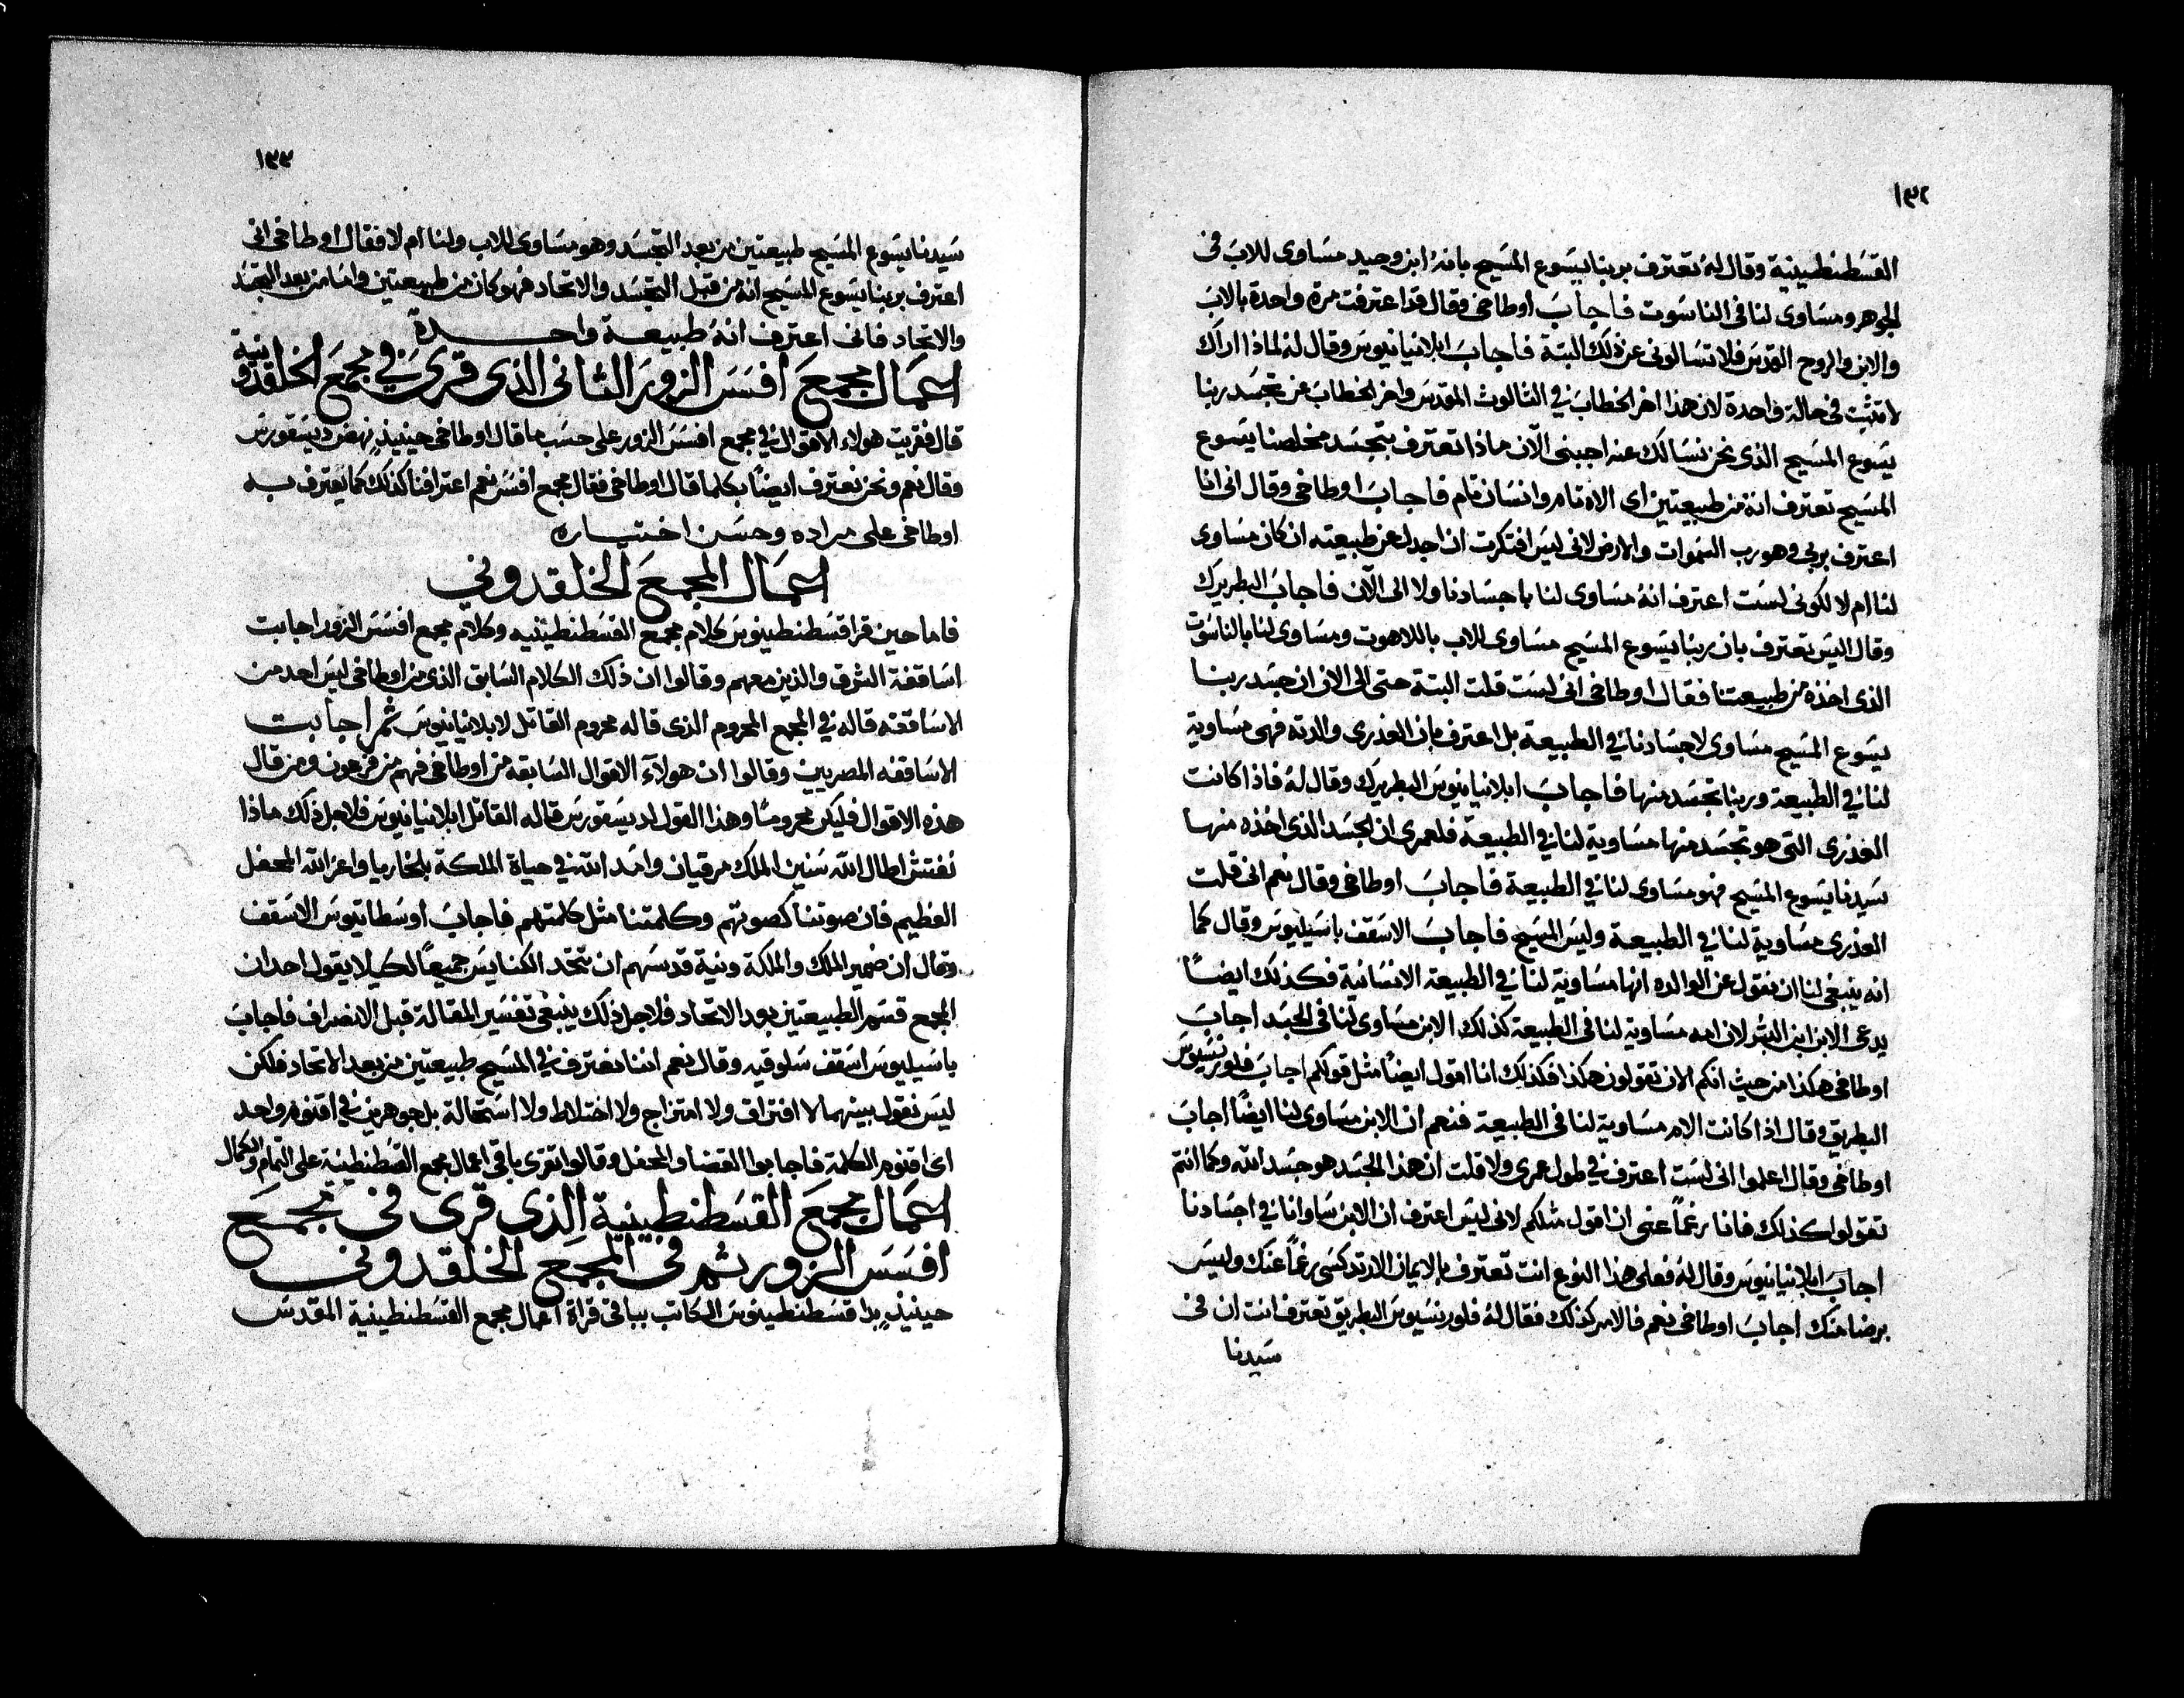 ١٣٢
القسطنطينية وقال له تعترف بربنا يسوع المسيح بانه ابن وحيد مساوى للاب فى
الجوهر ومساوى لنا فى الناسوت فاجاب اوطاخى وقال قد اعترفت مرة واحدة بالاب
والابن والروح القدس فلا تسالونى عن ذلك البتة فاجاب ابلانيانيوس وقال له لماذا اراك
لا تثبت فى حالة واحدة لان هذا اخر الخطاب فى الثالوث المقدس واخر الخطاب عن تجسد ربنا
يسوع المسيح الذى نحن نسالك عنه اجبنى الآن ماذا تعترف بتجسد مخلصنا يسوع
المسيح تعترف انه من طبيعتين اى الاه تام وانسان تام فاجاب اوطاخى وقال انى انا
اعترف بربى وهو رب السموات والارض لانى ليس افتكرت ان اجدل عن طبيعته ان كان مساوى
لنا ام لا لكونى لست اعترف انه مساوى لنا باجسادنا ولا الى الآن فاجاب البطريرك
وقال اليس تعترف بان ربنا يسوع المسيح مساوى للاب باللاهوت ومساوى لنا بالناسوت
الذى اخذه من طبيعتنا فقال اوطاخى انى لست قلت البتة حتى الى الان ان جسد ربنا
يسوع المسيح مساوى لاجسادنا فى الطبيعة بل اعترف بان العذرى والدته فهى مساوية
لنا فى الطبيعة وربنا تجسد منها فاجاب ابلانيانيوس البطريرك وقال له فاذا كانت
العذرى التى هو تجسد منها مساوية لنا فى الطبيعة فلعمرى ان الجسد الذى اخذه منها
سيدنا يسوع المسيح فهو مساوى لنا فى الطبيعة فاجاب اوطاخى وقال نعم انى قلت
العذرى مساوية لنا فى الطبيعة وليس المسيح فاجاب الاسقف باسيليوس وقال كما
انه ينبغى لنا ان نقول عن الوالده انها مساوية لنا فى الطبيعة الانسانية فكذلك ايضاً
يدعى الابن ابن البشر لان امه مساوية لنا فى الطبيعة كذلك الابن مساوى لنا فى الجسد اجاب
اوطاخى هكذا من حيث انكم الان تقولون هكذا فكذلك انا اقول ايضاً مثل قولكم اجاب فلورنسيوس
البطريق وقال اذا كانت الام مساوية لنا فى الطبيعة فنعم ان الابن مساوى لنا ايضاً اجاب
اوطاخى وقال اعلموا انى لست اعترف فى طول عمرى ولا قلت ان هذا الجسد هو جسد الله وكما انتم
تقولوا كذلك فانا رغماً عنى ان اقول مثلكم لانى ليس اعترف ان الابن ساوانا فى اجسادنا
اجاب ابلانيانيوس وقال له فعلى هذا النوع انت تعترف بالايمان الارتدكسى رغماً عنك وليس
برضا منك اجاب اوطاخى نعم فالامر كذلك فقال له فلورنسيوس البطريق تعترف انت ان فى
سيدنا
١٣٣
سيدنا يسوع المسيح طبيعتين من بعد التجسد وهو مساوى للاب ولنا ام لا فقال اوطاخى انى
اعترف بربنا يسوع المسيح انه من قبل التجسد والاتحاد فهو كان من طبيعتين واما من بعد التجسد
والاتحاد فانى اعترف انه طبيعة واحدة
اعمال مجمع افسس الزور الثانى الذى قرى فى مجمع الخلقدونية
قال فقريت هولاء الاقوال فى مجمع افسس الزور على حسب ما قال اوطاخى حينيذٍ نهض ديسقورس
وقال نعم ونحن نعترف ايضاً بكلما قال اوطاخى فقال مجمع افسس نعم اعترافنا كذلك كما يعترف به
اوطاخى على مراده وحسن اختياره
اعمال المجمع الخلقدوني
فاما حين قرا قسطنطينوس كلام مجمع القسطنطينيه وكلام مجمع افسس الزور اجابت
اساقفة الشرق والذين معهم وقالوا ان ذلك الكلام السابق الذى من اوطاخى ليس احد من
الاساقفه قاله فى المجمع المحروم الذى قاله محروم القاتل لابلانيانيوس ثم اجابت
الاساقفه المصريين وقالوا ان هولاء الاقوال السابقه من اوطاخى فهم من فرعون ومن قال
هذه الاقوال فليكن محروماً وهذا القول لديسقورس قاله القاتل ابلانيانيوس فلاجل ذلك ماذا
نفتش اطال الله سنين الملك مرقيان وامد الله فى حياة الملكة بلخاريا واعز الله المحفل
العظيم فان صوتنا كصوتهم وكلمتنا مثل كلمتهم فاجاب اوسطاتيوس الاسقف
وقال ان ضمير الملك والملكة ونية قدسهم ان تتخد الكنايس جميعاً لكيلا يقول احد ان
المجمع قسم الطبيعتين بعد الاتحاد فلاجل ذلك ينبغى تفسير المقالة قبل الانصراف فاجاب
باسيليوس اسقف سلوقيه وقال نعم اننا نعترف فى المسيح طبيعتين من بعد الاتحاد فلكن
ليس نقول بينهما لا افتراق ولا امتزاج ولا اختلاط ولا استحالة بل جوهرين فى اقنوم واحد
اى اقنوم الكلمة فاجابوا القضا والمحفل وقالوا تقرى باقى اعمال مجمع القسطنطينية على التمام والكمال
اعمال مجمع القسطنطينية الذى قرى فى مجمع
افسس الزور ثم فى المجمع الخلقدونى
حينيذٍ بدا قسطنطينوس الكاتب بباقى قراة اعمال مجمع القسطنطينية المقدس